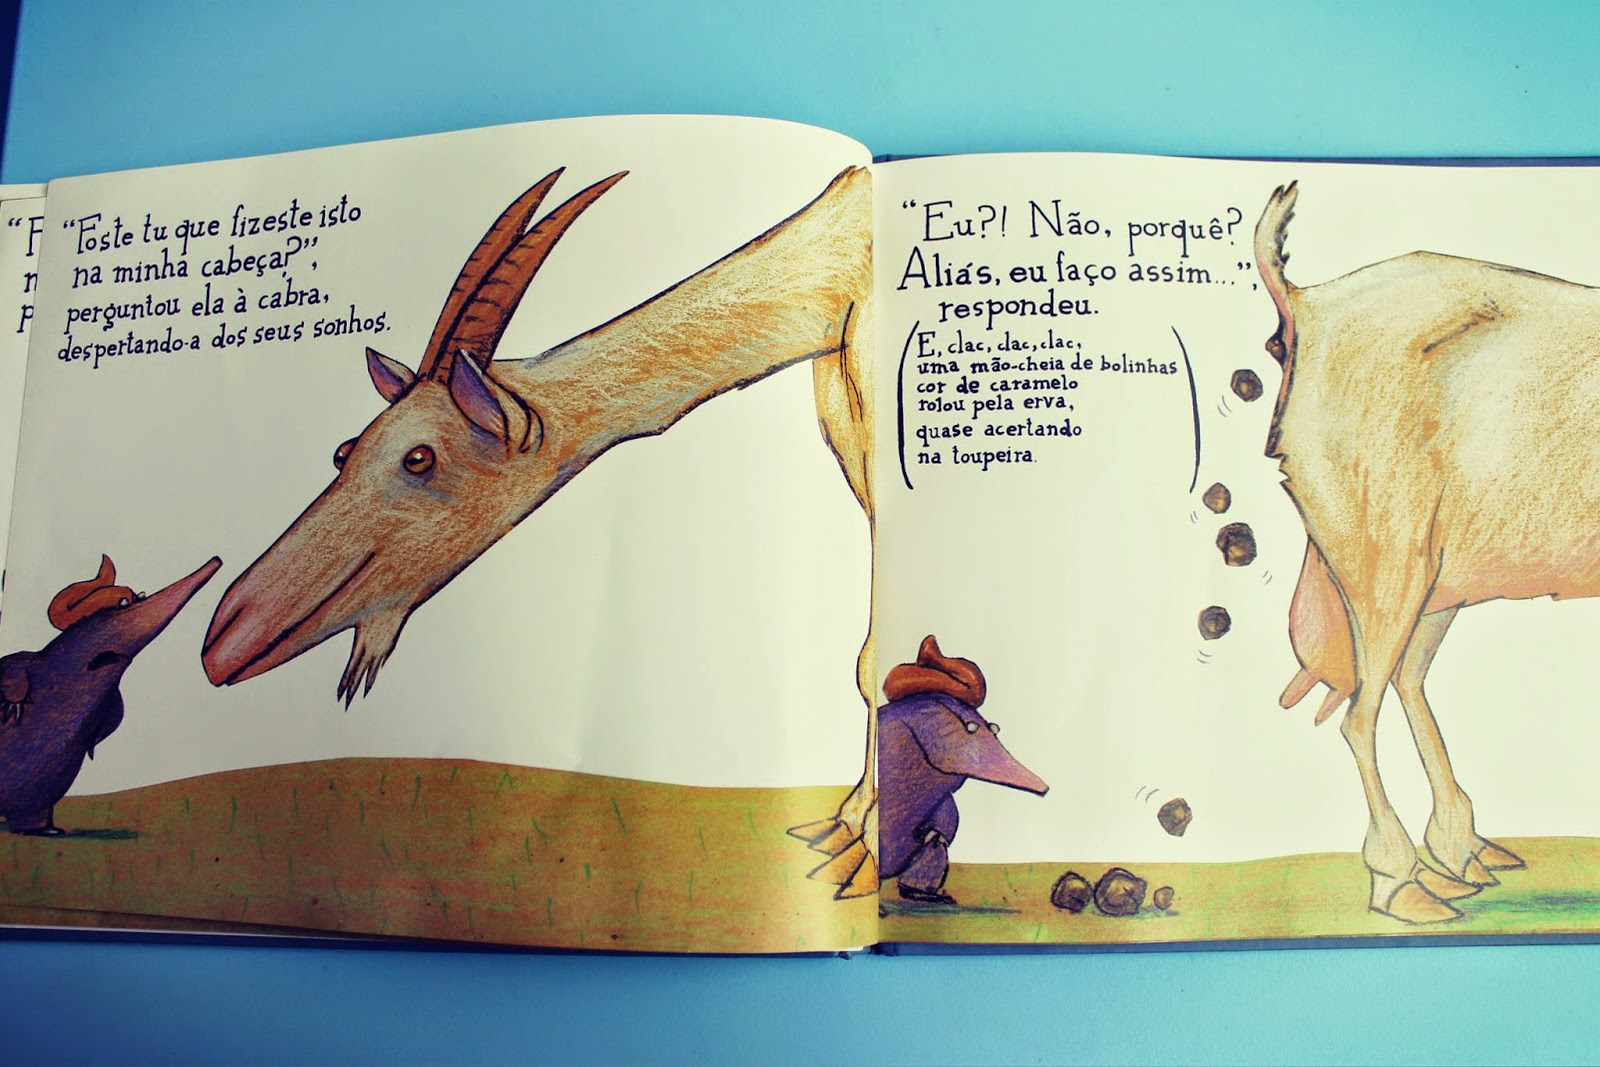 “Foste tu que fizeste isto
na minha cabeça?”,
perguntou ela à cabra,
despertando-a dos seus sonhos.
“Eu?! Não, porquê?
Aliás, eu faço assim...”,
respondeu.
(E, clac, clac, clac,
uma mão-cheia de bolinhas
cor de caramelo
rolou pela erva,
quase acertando
na toupeira.)